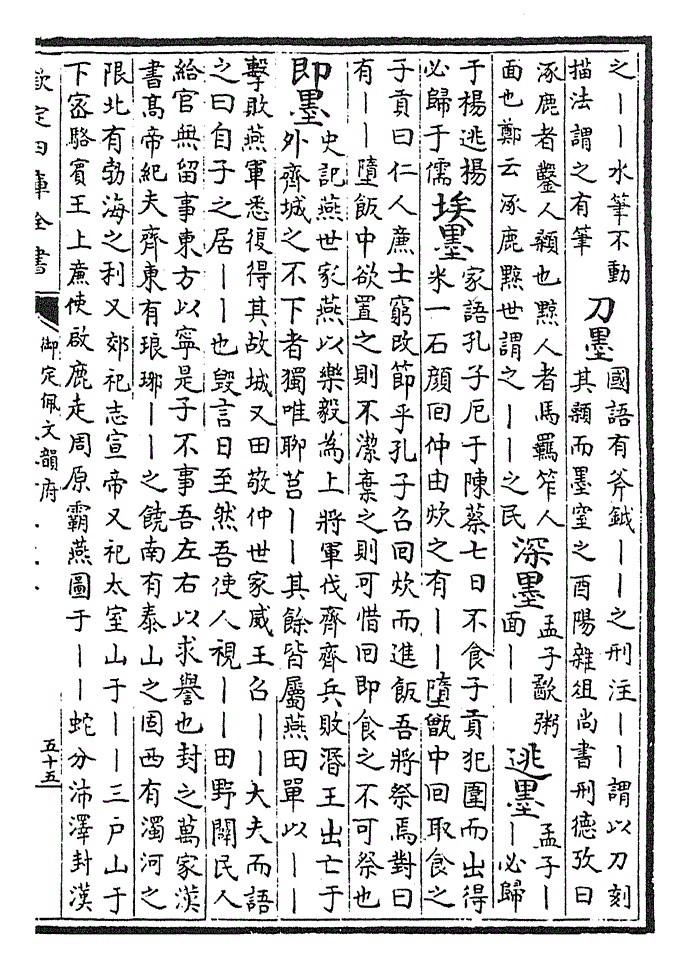 之丨丨水筆不動
描法謂之有筆
刀墨
國語有斧鉞丨丨之刑注丨丨謂以刀刻
其顙而墨窒之酉陽雜俎尚書刑德攷曰
涿鹿者鑿人顙也黥人者馬羈笮人
面也鄭云涿鹿黥世謂之丨丨之民
深墨
孟子歠粥
面丨丨
逃墨
孟子丨
丨必歸
于楊逃楊
必歸于儒
埃墨
家語孔子厄于陳蔡七日不食子貢犯圍而出得
米一石顔回仲由炊之有丨丨墮甑中回取食之
子貢曰仁人亷士窮改節乎孔子召回炊而進飯吾將祭焉對曰
有丨丨墮飯中欲置之則不潔棄之則可惜回即食之不可祭也
即墨
史記燕世家燕以樂毅為上將軍伐齊齊兵敗湣王出亡于
外齊城之不下者獨唯聊莒丨丨其餘皆屬燕田單以丨丨
擊敗燕軍悉復得其故城又田敬仲世家威王召丨丨大夫而語
之曰自子之居丨丨也毀言日至然吾使人視丨丨田野闢民人
給官無留事東方以寧是子不事吾左右以求譽也封之萬家漢
書髙帝紀夫齊東有琅琊丨丨之饒南有泰山之固西有濁河之
限北有勃海之利又郊祀志宣帝又祀太室山于丨丨三戸山于
下宻駱賓王上亷使啟鹿走周原霸燕圖于丨丨蛇分沛澤封漢
欽定四庫全書
御定佩文韻府
五十五